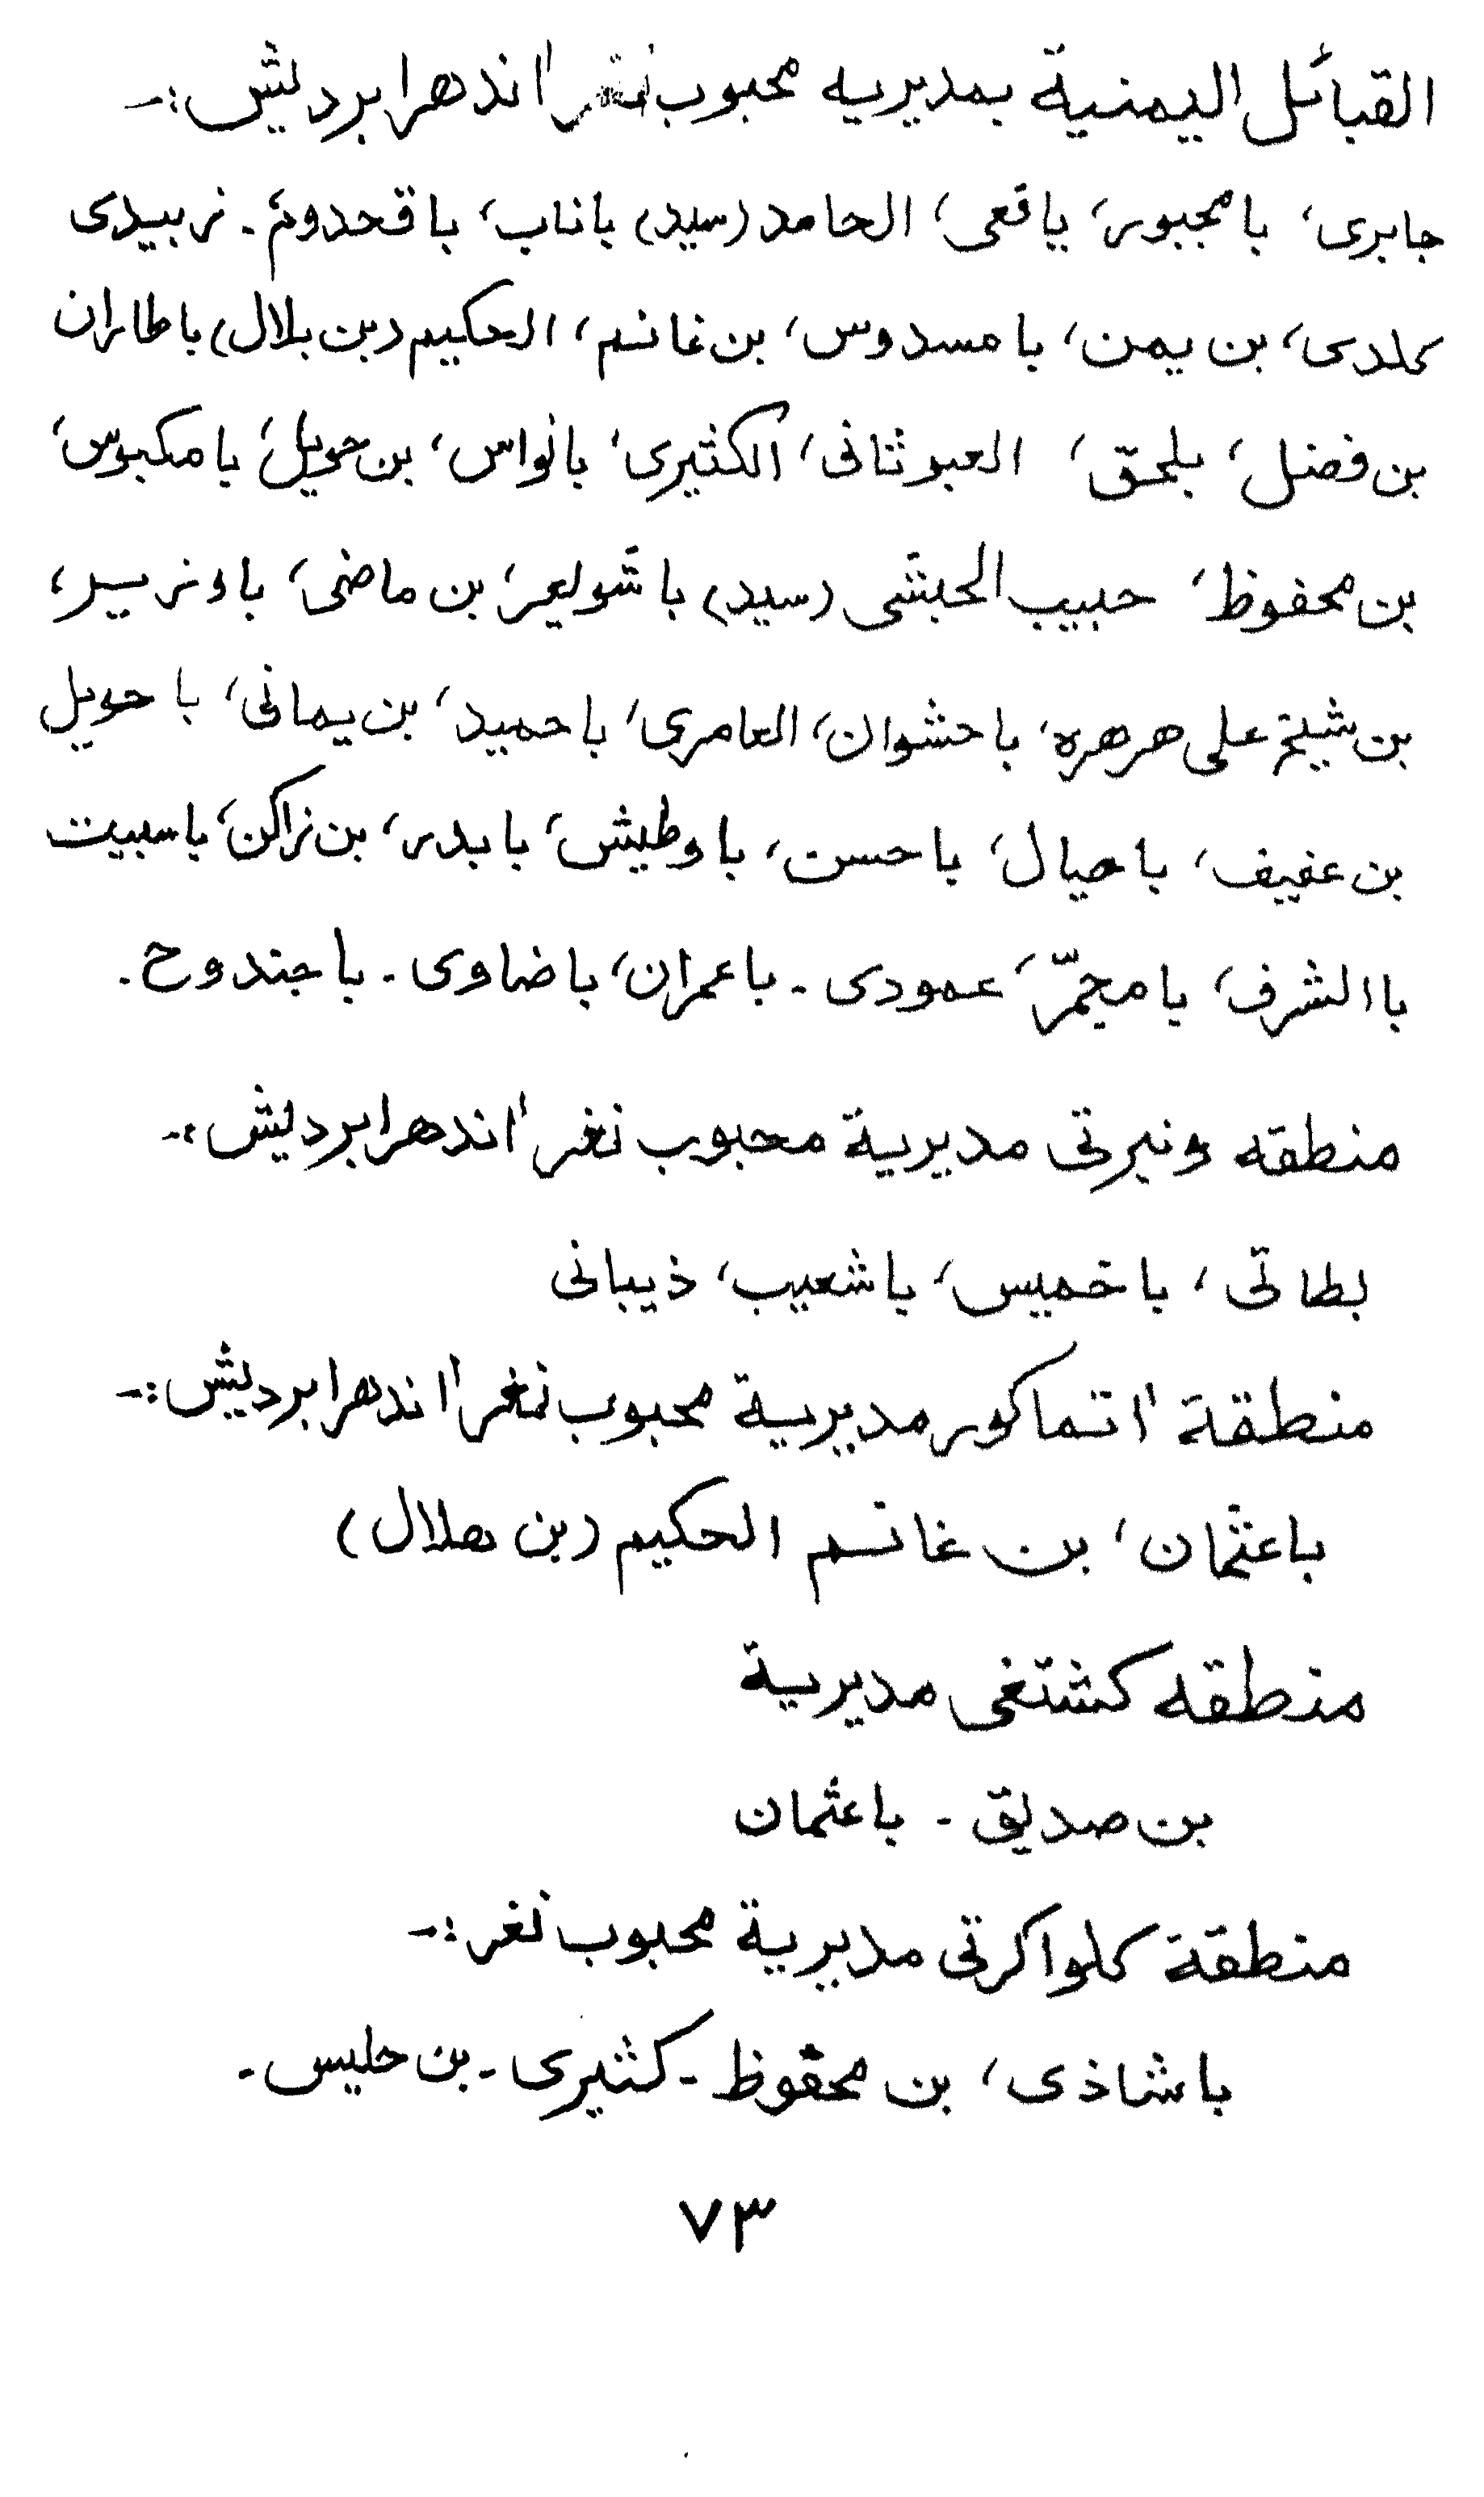 القبائل اليمنية بمديريه محبوب نغر اندهرا برديش :-
جابرى، با مجبور، يافعى، الحامد (سيد) باناب، با قحدوم - زبيدى
كلدى، بن يمن، با مسدوس، بن غانم، الحكيم (بن بلال) با طاران
بن فضل، بلحق، العبوثانى، الكثيرى، بانواس، بن حويل، با مكبوس،
بن محفوظ، حبيب الحبشى (سيد) با شويعر، بن ماضى، با وزير،
بن شيخ على هرهره، با حشوان، العامرى، با حميد، بن يمانى، با حويل
بن عفيف، با حيال، با حسن، با وطيش، با بدر، بن زاكن، با سبيت
با الشرف، با مجمّر، عمودى - با عمران، با ضاوى - با جندوح -
منطقه ونبرتى مديرية محبوب نغر اندهرا برديش :-
بطاتى، با خميس، با شعيب، ذيبانى
منطقة اتماكور مديرية محبوب نغر اندهرا برديش :-
با عثمان، بن غانم الحكيم (بن هلال)
منطقه كشتغى مديرية
بن صديق - با عثمان
منطقة كلواكرتى مديرية محبوب نغر :-
با شاذى، بن محفوظ - كثيرى - بن حليس -
٧٣